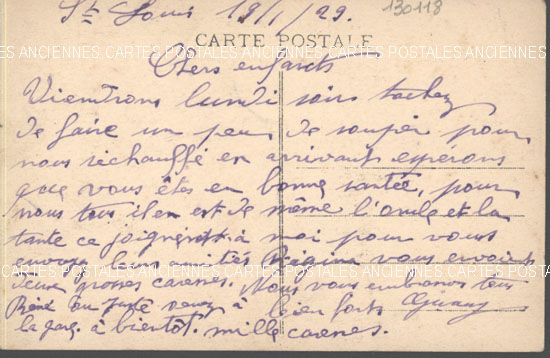 St Louis 19/1/29.
130118
CARTE POSTALE
CARTES POSTALES ANCIENNES CARTES POSTALES ANCIENNES CARTES POSTALES ANCIENNES
Chers enfants
Viendrons lundi soir tachez
de faire un peu de souper pour
nous réchauffé en arrivant espérons
que vous êtes en bonne santée, pour
nous tous il en est de même l'oncle et la
tante ce joignent à moi pour vous
envoyer leurs amitiés Régina vous envoient
CARTES POSTALES ANCIENNES CARTES POSTALES ANCIENNES CARTES POSTALES ANCIENNES
deux grosses caresses. Nous vous embrassons tous
René ou Juste venez à bien forts
la gare. à bientôt. mille caresses.